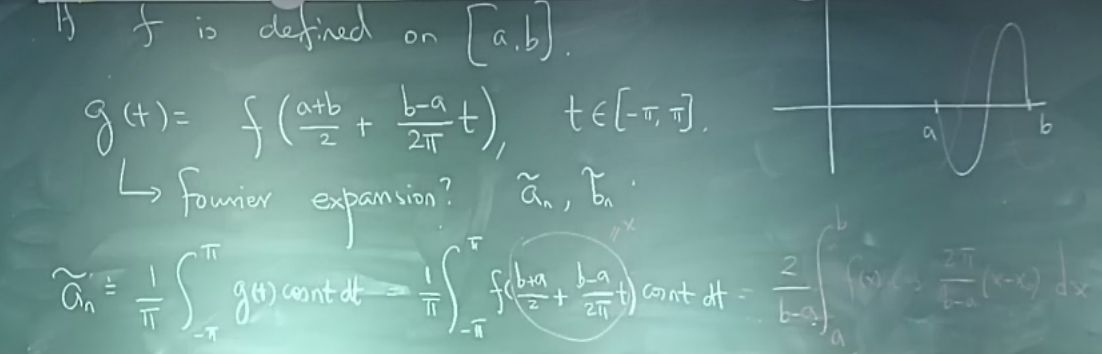 If f is defined on [a,b].
g(t) = f(\frac{a+b}{2} + \frac{b-a}{2π}t), t∈[-π, π].
↳ fourier expansion? ã_n, b̃_n.
ã_n = \frac{1}{π} ∫_{-π}^{π} g(t) cosnt dt = \frac{1}{π} ∫_{-π}^{π} f(\frac{b+a}{2} + \frac{b-a}{2π}t) cosnt dt = \frac{2}{b-a} ∫_a^b f(x) cos \frac{2π}{b-a}(x-x_0) dx
"x
a b